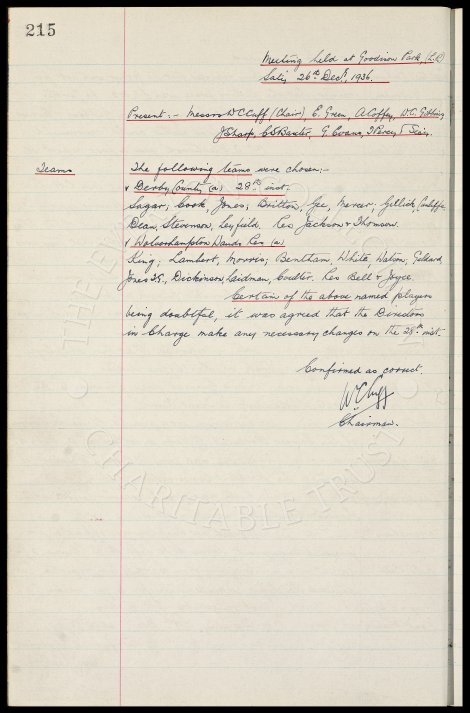 215
Meeting held at Goodison Park, (L'pool)
Sat. 26th Dec., 1936.
Present :- Messrs W C Cuff (Chair), E. Green, A. Coffey, W.C. Gibbins
J Sharp, C S Baxter, G. Evans, &
Teams
The following teams were chosen:-
v Derby County (a) 28th inst.
Sagar; Cook, Jones; Britton, Gee, Mercer; Gillick, Cunliffe
Dean, Stevenson, Leyfield. Res Jackson & Thomson.
v Wolverhampton Wands. Res (a)
King; Lambert, Morris; Bentham, White, Watson; Geldard,
Dickinson, Laidman, Coulter. Res Bell & Joyce.
Certain of the above named players
being doubtful, it was agreed that the Directors
in Charge make any necessary changes on the 28th inst.
Confirmed as correct.
W. C Cuff
Chairman.
CHARITABLE TRUST